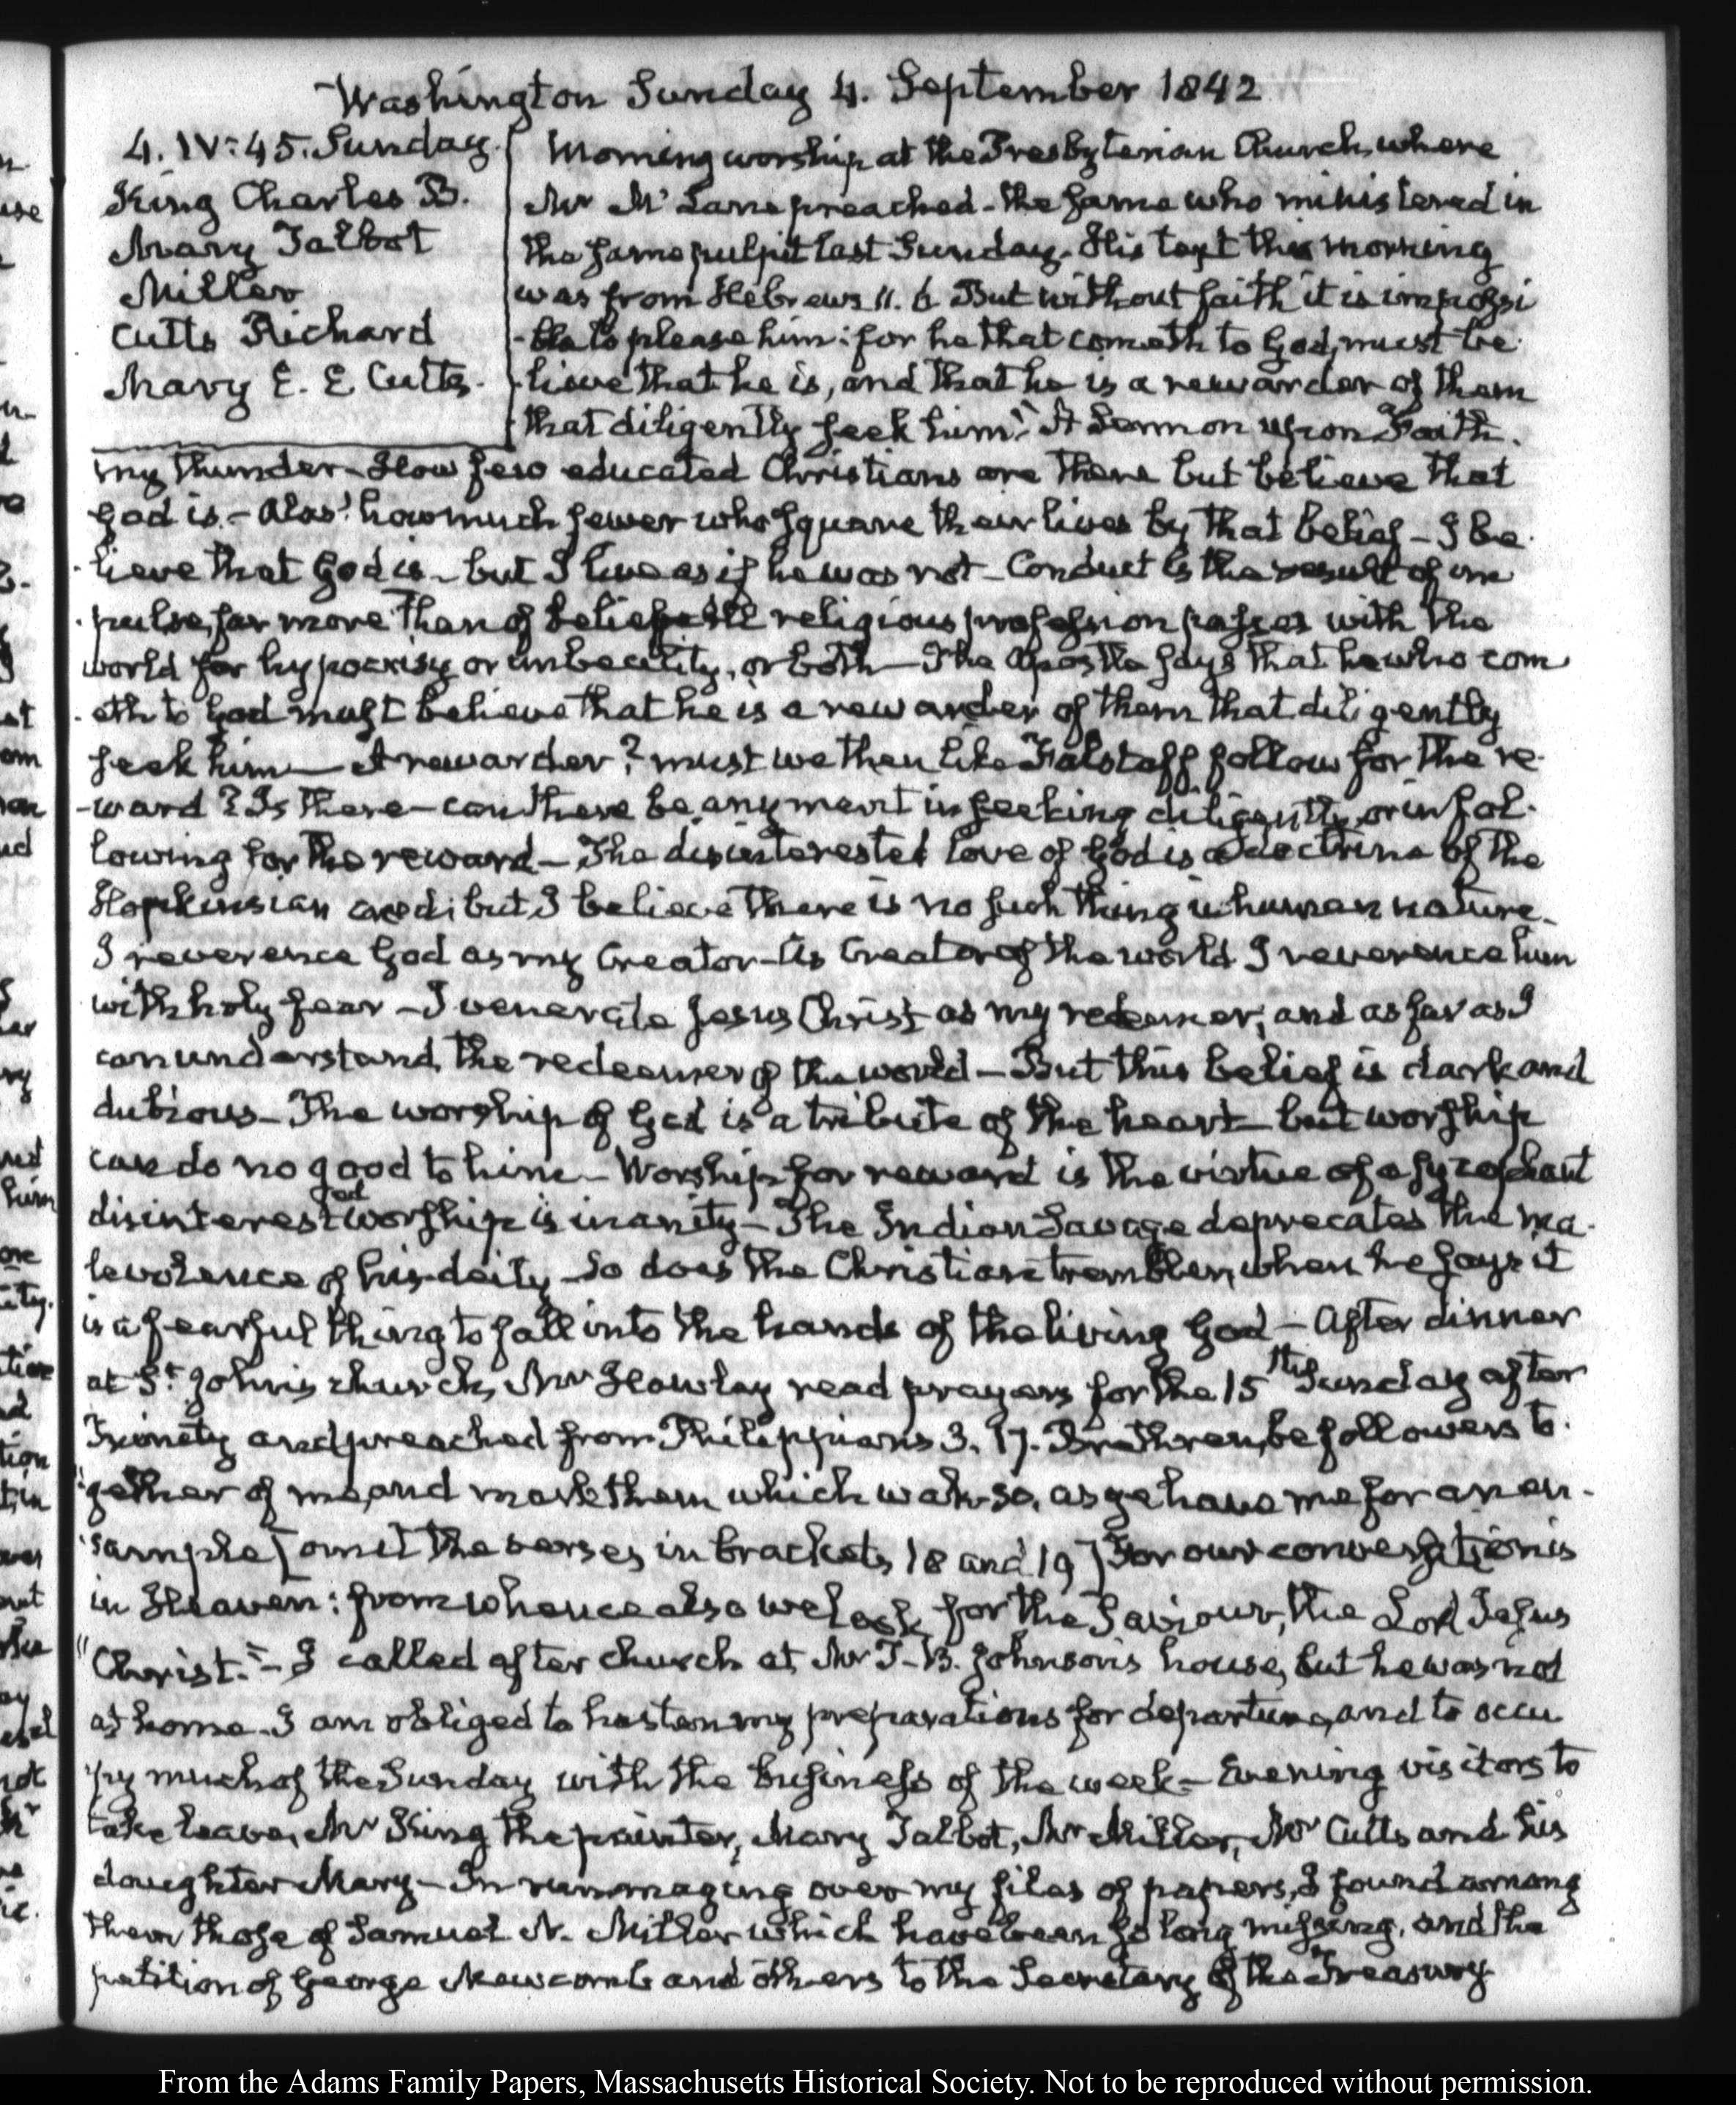 Washington Sunday 4. September 1842
4. IV: 45. Sunday.
King Charles B.
Mary Talbot
Miller
Cutts Richard
Mary E. E Cutts.
Morning worship at the Presbyterian Church, where
Mr Mc Lane preached - the same who ministered in
the same pulpit last Sunday. His text this morning
was from Hebrews 11. 6 But without faith it is impossi
-ble to please him: for he that cometh to God, must be-
-lieve that he is, and that he is a rewarder of them
that diligently seek him." A Sermon upon Faith.
my thunder - How few educated Christians are there but believe that
God is. - Alas! how much fewer who square their lives by that belief - I be-
-lieve that God is - but I live as if he was not - Conduct is the result of im
-pulse, far more than of belief religious profession passes with the
world for hypocrisy or imbecility, or both - The Apostle says that he who com
-eth to God must believe that he is a rewarder of them that diligently
seek him - A rewarder? must we then like Falstaff follow for the re-
-ward? Is there - can there be, any merit in seeking diligently, or in fol-
lowing for the reward - The disinterested love of God is a doctrine of the
Hopkinsian creed; but I believe there is no such thing in human nature.
I reverence God as my Creator - As Creator of the world I reverence him
with holy fear - I venerate Jesus Christ as my redeemer; and as far as I
can understand, the redeemer of the world - But this belief is dark and
dubious - The worship of God is a tribute of the heart - but worship
can do no good to him - Worship for reward is the virtue of a sycophant
disinterested worship is inanity - The Indian Savage deprecates the ma-
levolence of his deity - So does the Christian trembler, when he says it
is a fearful thing to fall into the hands of the living God - After dinner
at St. John's church, Mr Hawley read prayers for the 15th Sunday after
Trinity and preached from Philippians 3. 17. Brethren, be followers to-
"gether of me, and mark them which walk so, as ye have me for an en-
"sample [omit the verses in brackets 18 and 19] For our conversation is
in Heaven: from whence also we look for the Saviour, the Lord Jesus
"Christ." - I called after church at Mr T. B. Johnson's house, but he was not
at home. I am obliged to hasten my preparations for departure, and to occu
-py much of the Sunday with the business of the week - Evening visitors to
take leave, Mr King the painter, Mary Talbot, Mr Miller, Mr Cutts and his
daughter Mary - In rummaging over my files of papers, I found among
them those of Samuel N. Miller which have been so long missing, and the
petition of George Newcomb and others to the Secretary of the Treasury
From the Adams Family Papers, Massachusetts Historical Society. Not to be reproduced without permission.